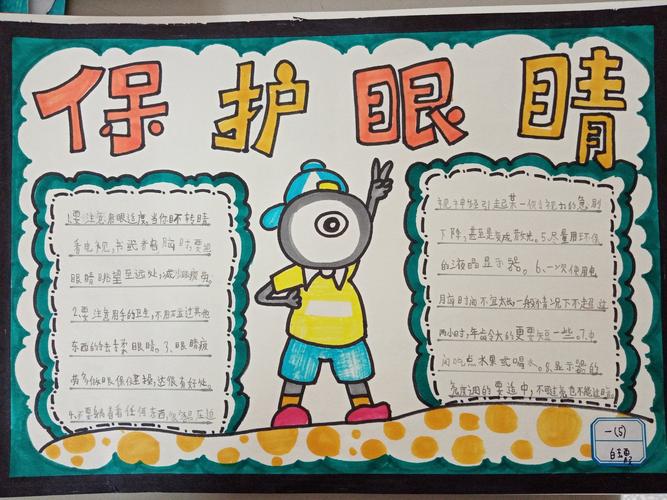 保护眼睛
1.要注意用眼适度,当你目不转睛
看电视,书或者电脑时,要把
眼睛眺望至远处,减少眼疲劳。
2.要注意用手的卫生,不用不洁过其他
东西的手去揉眼睛。3、眼睛疲
劳多做眼保健操,这很有好处。
4.不要躺着看任何东西,
视神经引起某一侧
下降,甚至是变成散光。5.尽量用环保
的液晶显示器。6、一次使用电
时间不宜太长,一般情况下不走超过
两小时,年龄小的更要短一些。7.中
间吃点水果或喝水。8.显示器的
亮度调的要适中,不要过亮也不能过暗。
一(5)